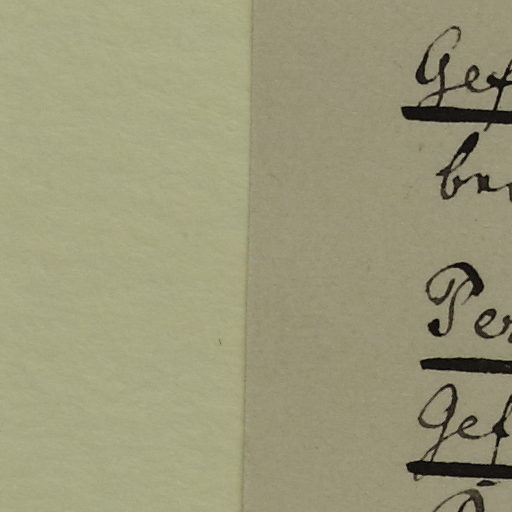 Gef
be
Per
Gef